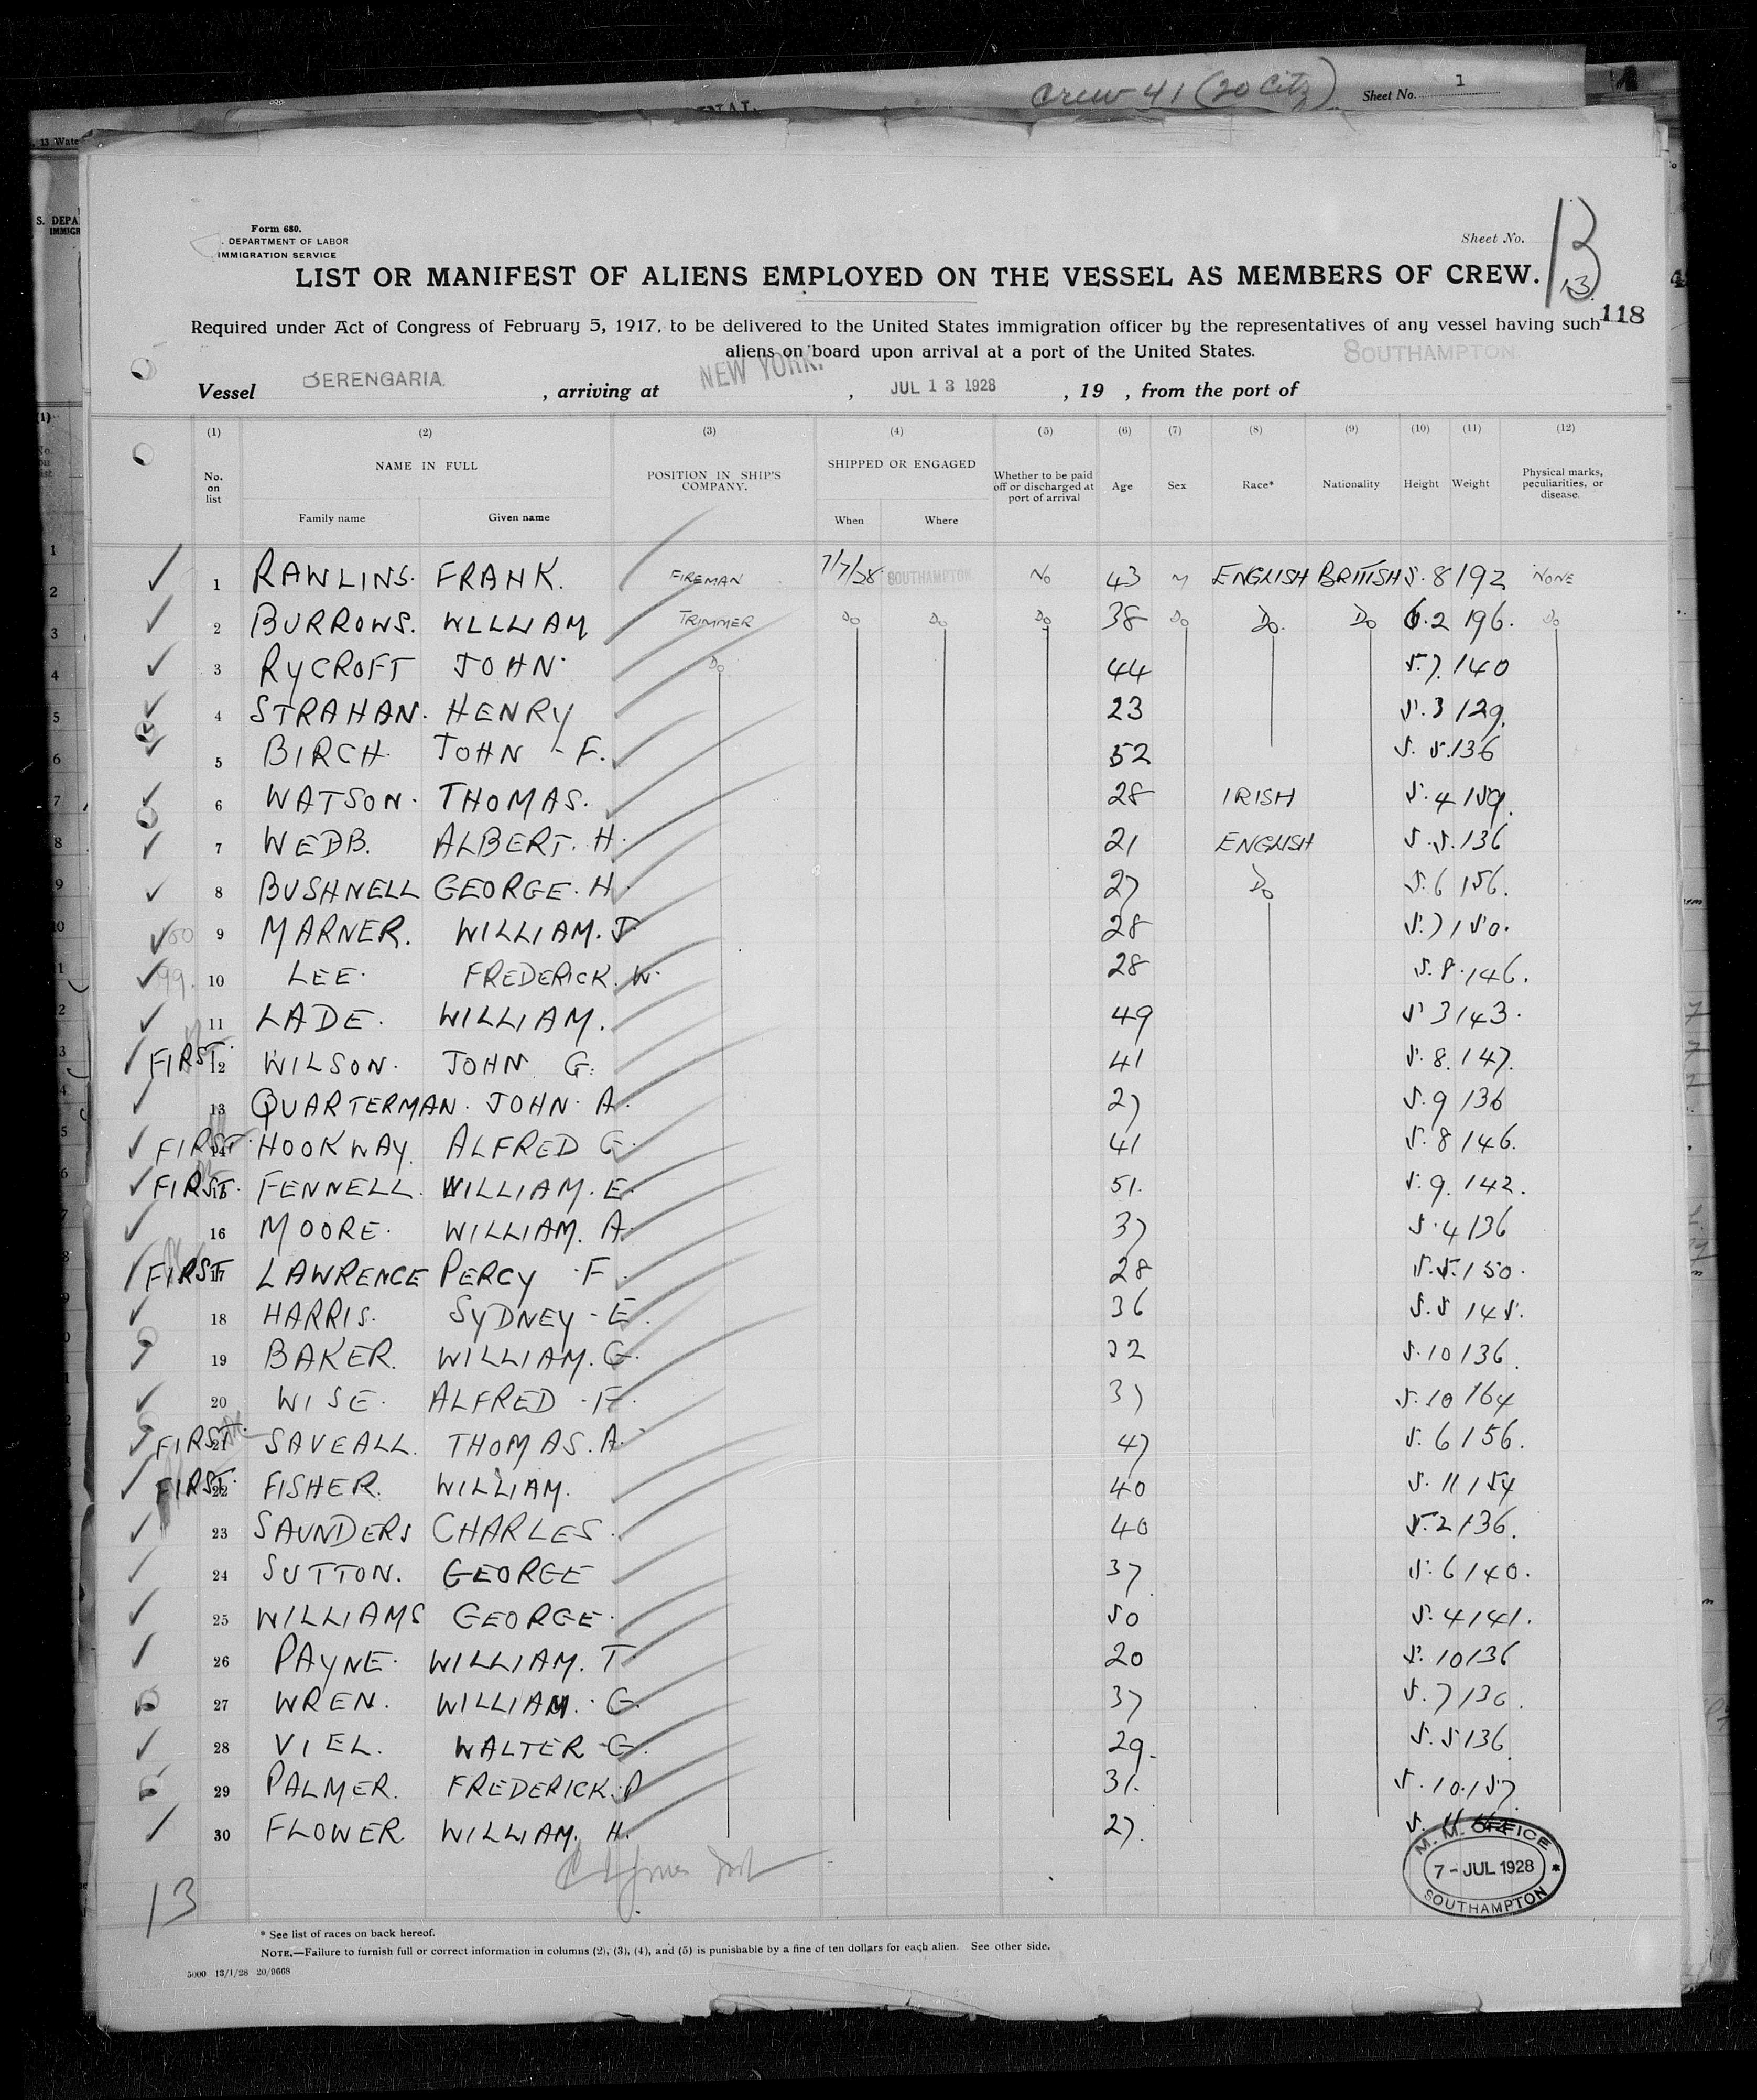 Crew 41 (20 Citz) Sheet No. 1
13 Wate
S. DEPA
IMMIGR
Form 680.
DEPARTMENT OF LABOR
IMMIGRATION SERVICE
Sheet No. 13
13
LIST OR MANIFEST OF ALIENS EMPLOYED ON THE VESSEL AS MEMBERS OF CREW.
118
Required under Act of Congress of February 5, 1917, to be delivered to the United States immigration officer by the representatives of any vessel having such
aliens on board upon arrival at a port of the United States.
Vessel BERENGARIA. , arriving at NEW YORK. , JUL 13 1928 , 19 , from the port of SOUTHAMPTON.
(1) (2) (3) (4) (5) (6) (7) (8) (9) (10) (11) (12)
No. on list NAME IN FULL Family name Given name POSITION IN SHIP'S COMPANY. SHIPPED OR ENGAGED When Where Whether to be paid off or discharged at port of arrival Age Sex Race* Nationality Height Weight Physical marks, peculiarities, or disease.
1 RAWLINS. FRANK. FIREMAN 7/7/28 SOUTHAMPTON. No 43 M ENGLISH BRITISH 5.8 192 NONE
2 BURROWS. WLLLIAM TRIMMER Do Do Do 38 Do Do. Do 6.2 196. Do
3 RYCROFT JOHN. Do 44 5.7. 140
4 STRAHAN. HENRY 23 5.3 129.
5 BIRCH. JOHN - F. 52 5.5. 136
6 WATSON. THOMAS. 28 IRISH 5.4 159.
7 WEBB. ALBERT. H. 21 ENGLISH 5.5. 136
8 BUSHNELL GEORGE. H. 27 Do 5.6 156.
9 MARNER. WILLIAM. J. 28 5.7 150.
10 LEE. FREDERICK. W. 28 5.8. 146.
11 LADE. WILLIAM. 49 5 3 143.
FIRST. 12 WILSON. JOHN G. 41 5.8. 147.
13 QUARTERMAN. JOHN. A. 27 5.9 136
FIRST. 14 HOOKWAY. ALFRED G. 41 5.8 146.
FIRST. 15 FENNELL. WILLIAM. E. 51. 5.9. 142.
16 MOORE. WILLIAM. A. 37 5.4 136
FIRST 17 LAWRENCE PERCY F. 28 5.5. 150.
18 HARRIS. SYDNEY - E. 36 5.5 145.
19 BAKER. WILLIAM. G. 22 5.10 136.
20 WISE. ALFRED - F. 37 5.10 164
FIRST. 21 SAVEALL. THOMAS. A. 47 5.6 156.
FIRST. 22 FISHER. WILLIAM. 40 5.11 154
23 SAUNDERS CHARLES. 40 5.2 136.
24 SUTTON. GEORGE 37. 5.6 140.
25 WILLIAMS GEORGE. 50 5.4 141.
26 PAYNE. WILLIAM. T 20 5.10 136
27 WREN. WILLIAM. G. 37 5.7 136.
28 VIEL. WALTER G. 29. 5.5 136
29 PALMER. FREDERICK. P 31. 5.10. 157.
30 FLOWER. WILLIAM. H. 27. 5. 11
M. M. OFFICE
7 - JUL 1928
SOUTHAMPTON
13
* See list of races on back hereof.
NOTE.—Failure to furnish full or correct information in columns (2), (3), (4), and (5) is punishable by a fine of ten dollars for each alien. See other side.
5000 13/1/28 20/9668